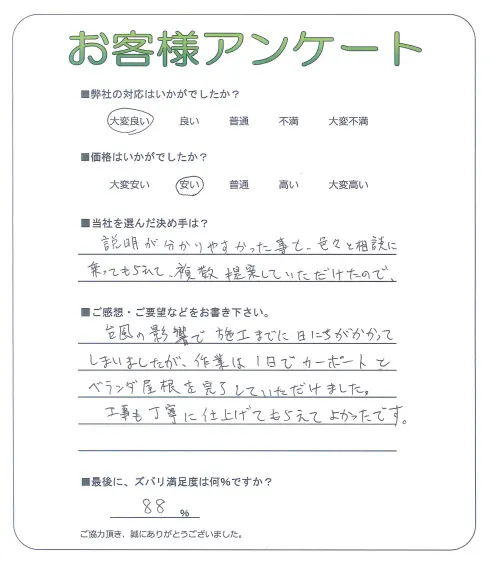 お客様アンケート
■弊社の対応はいかがでしたか？
大変良い 良い 普通 不満 大変不満
■価格はいかがでしたか？
大変安い 安い 普通 高い 大変高い
■当社を選んだ決め手は？
説明が分かりやすかった事と、色々と相談に
乗ってもらえて、複数提案していただけたので、
■ご感想・ご要望などをお書き下さい。
台風の影響で施工までに日にちがかかって
しまいましたが、作業は1日でカーポートと
ベランダ屋根を完了していただけました。
工事も丁寧に仕上げてもらえてよかったです。
■最後に、ズバリ満足度は何％ですか？
88 %
ご協力頂き、誠にありがとうございました。